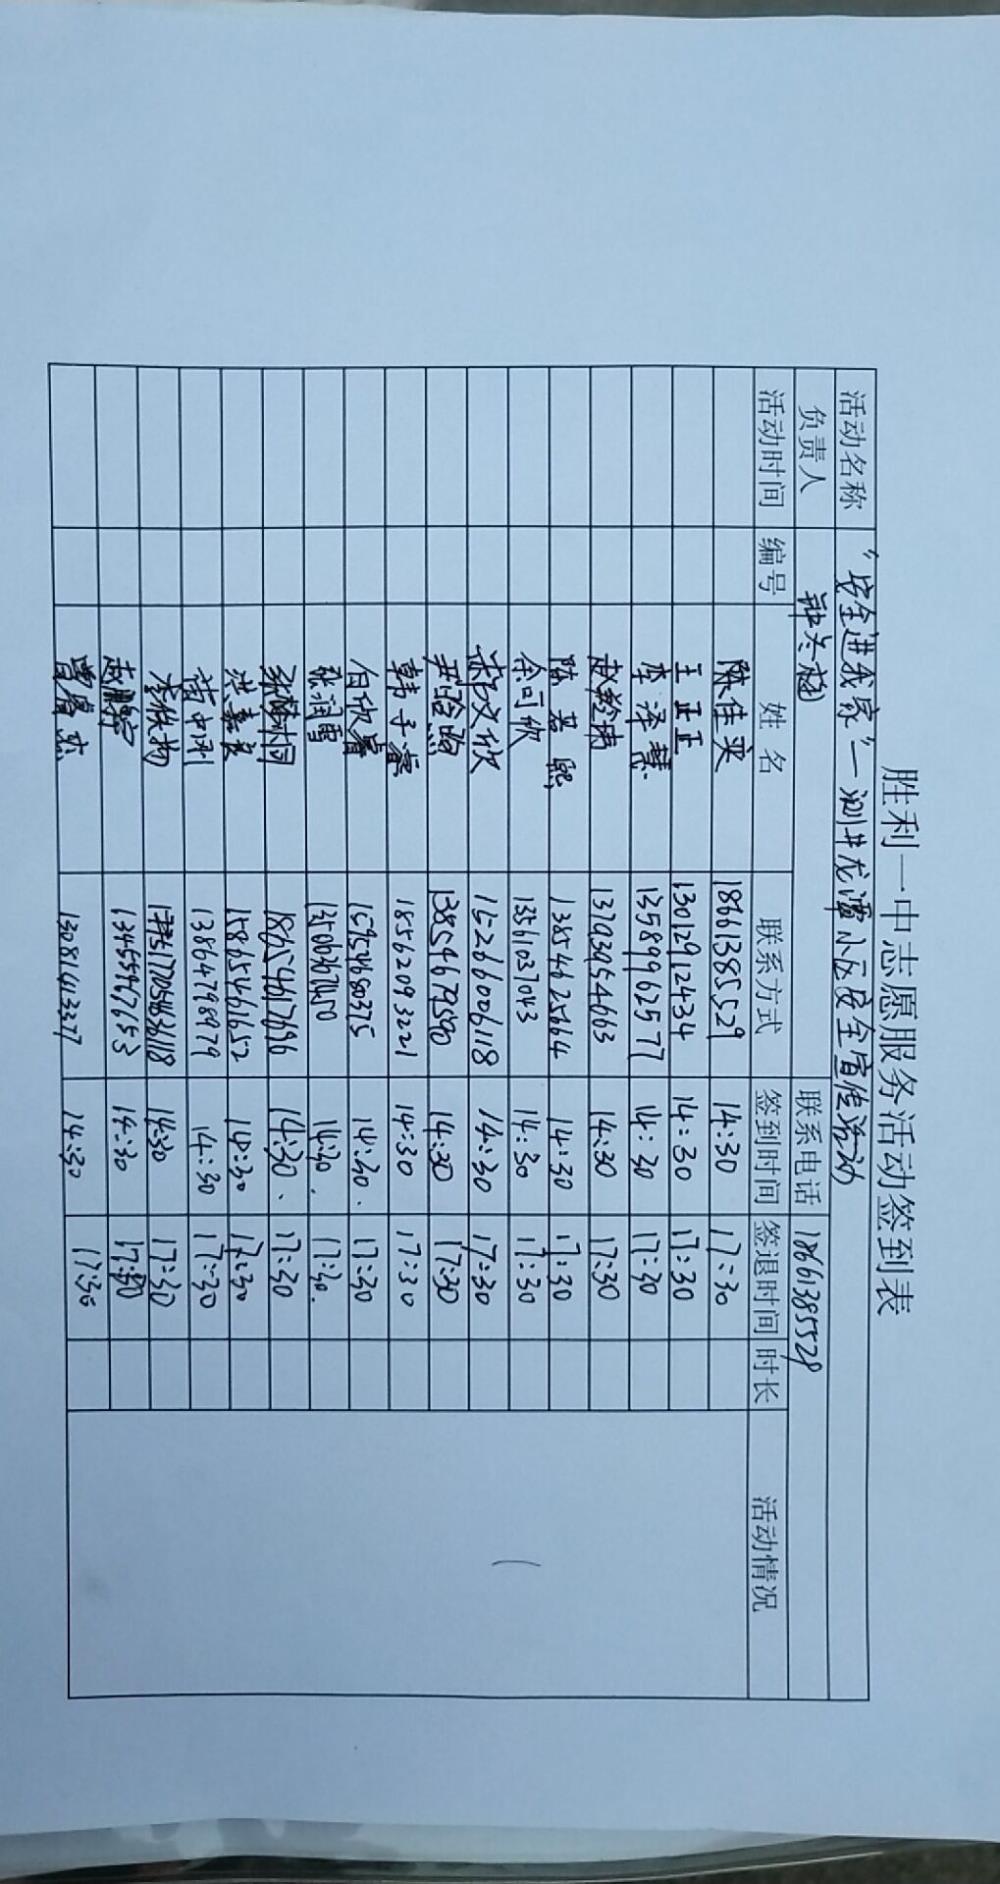 胜利一中志愿服务活动签到表
活动名称 "安全进我家"一测井龙潭小区安全宣传活动
负责人 联系电话 18661385529
活动时间 编号 姓名 联系方式 签到时间 签退时间 时长 活动情况
陈佳奕 18661385529 14:30 17:30
王正正 13012912434 14:30 17:30
李泽慧 13589962577 14:30 17:30
13793954663 14:30 17:30
陈若熙 13854625664 14:30 17:30
余可欣 13561037043 14:30 17:30
文欣 15266006118 14:30 17:30
13854679590 14:30 17:30
韩子 18562093221 14:30 17:30
白欣 15954680375 14:30 17:30
张润雪 14:30 17:30
18654617696 14:30 17:30
洪嘉良 15865461652 14:30 17:30
黄中州 13864798979 14:30 17:30
李 14:30 17:30
赵鹏宇 14:30 17:30
13081613337 14:30 17:30